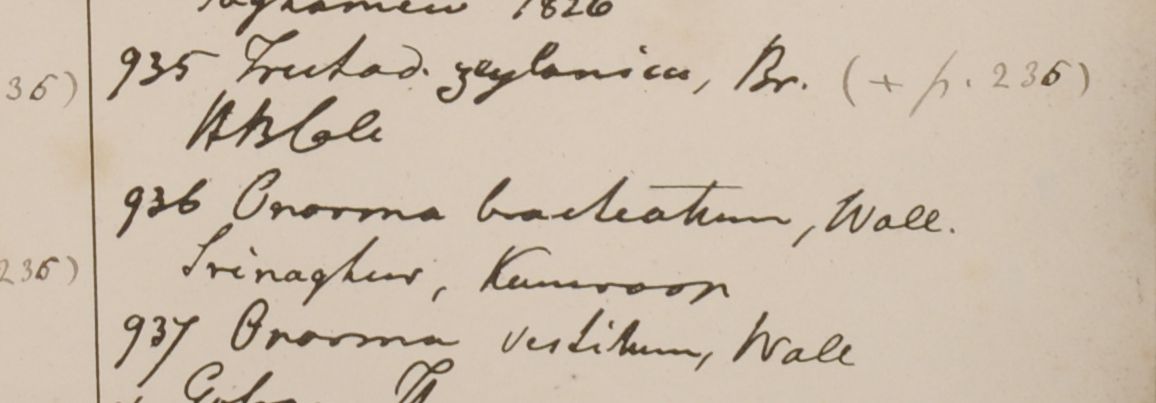 1826
36)
935 Trichod. zeylanica, Br. (+ p. 236)
HBC
936 Onosma bracteatum, Wall.
236)
Srinaghur, Kamroop
937 Onosma vestitum, Wall